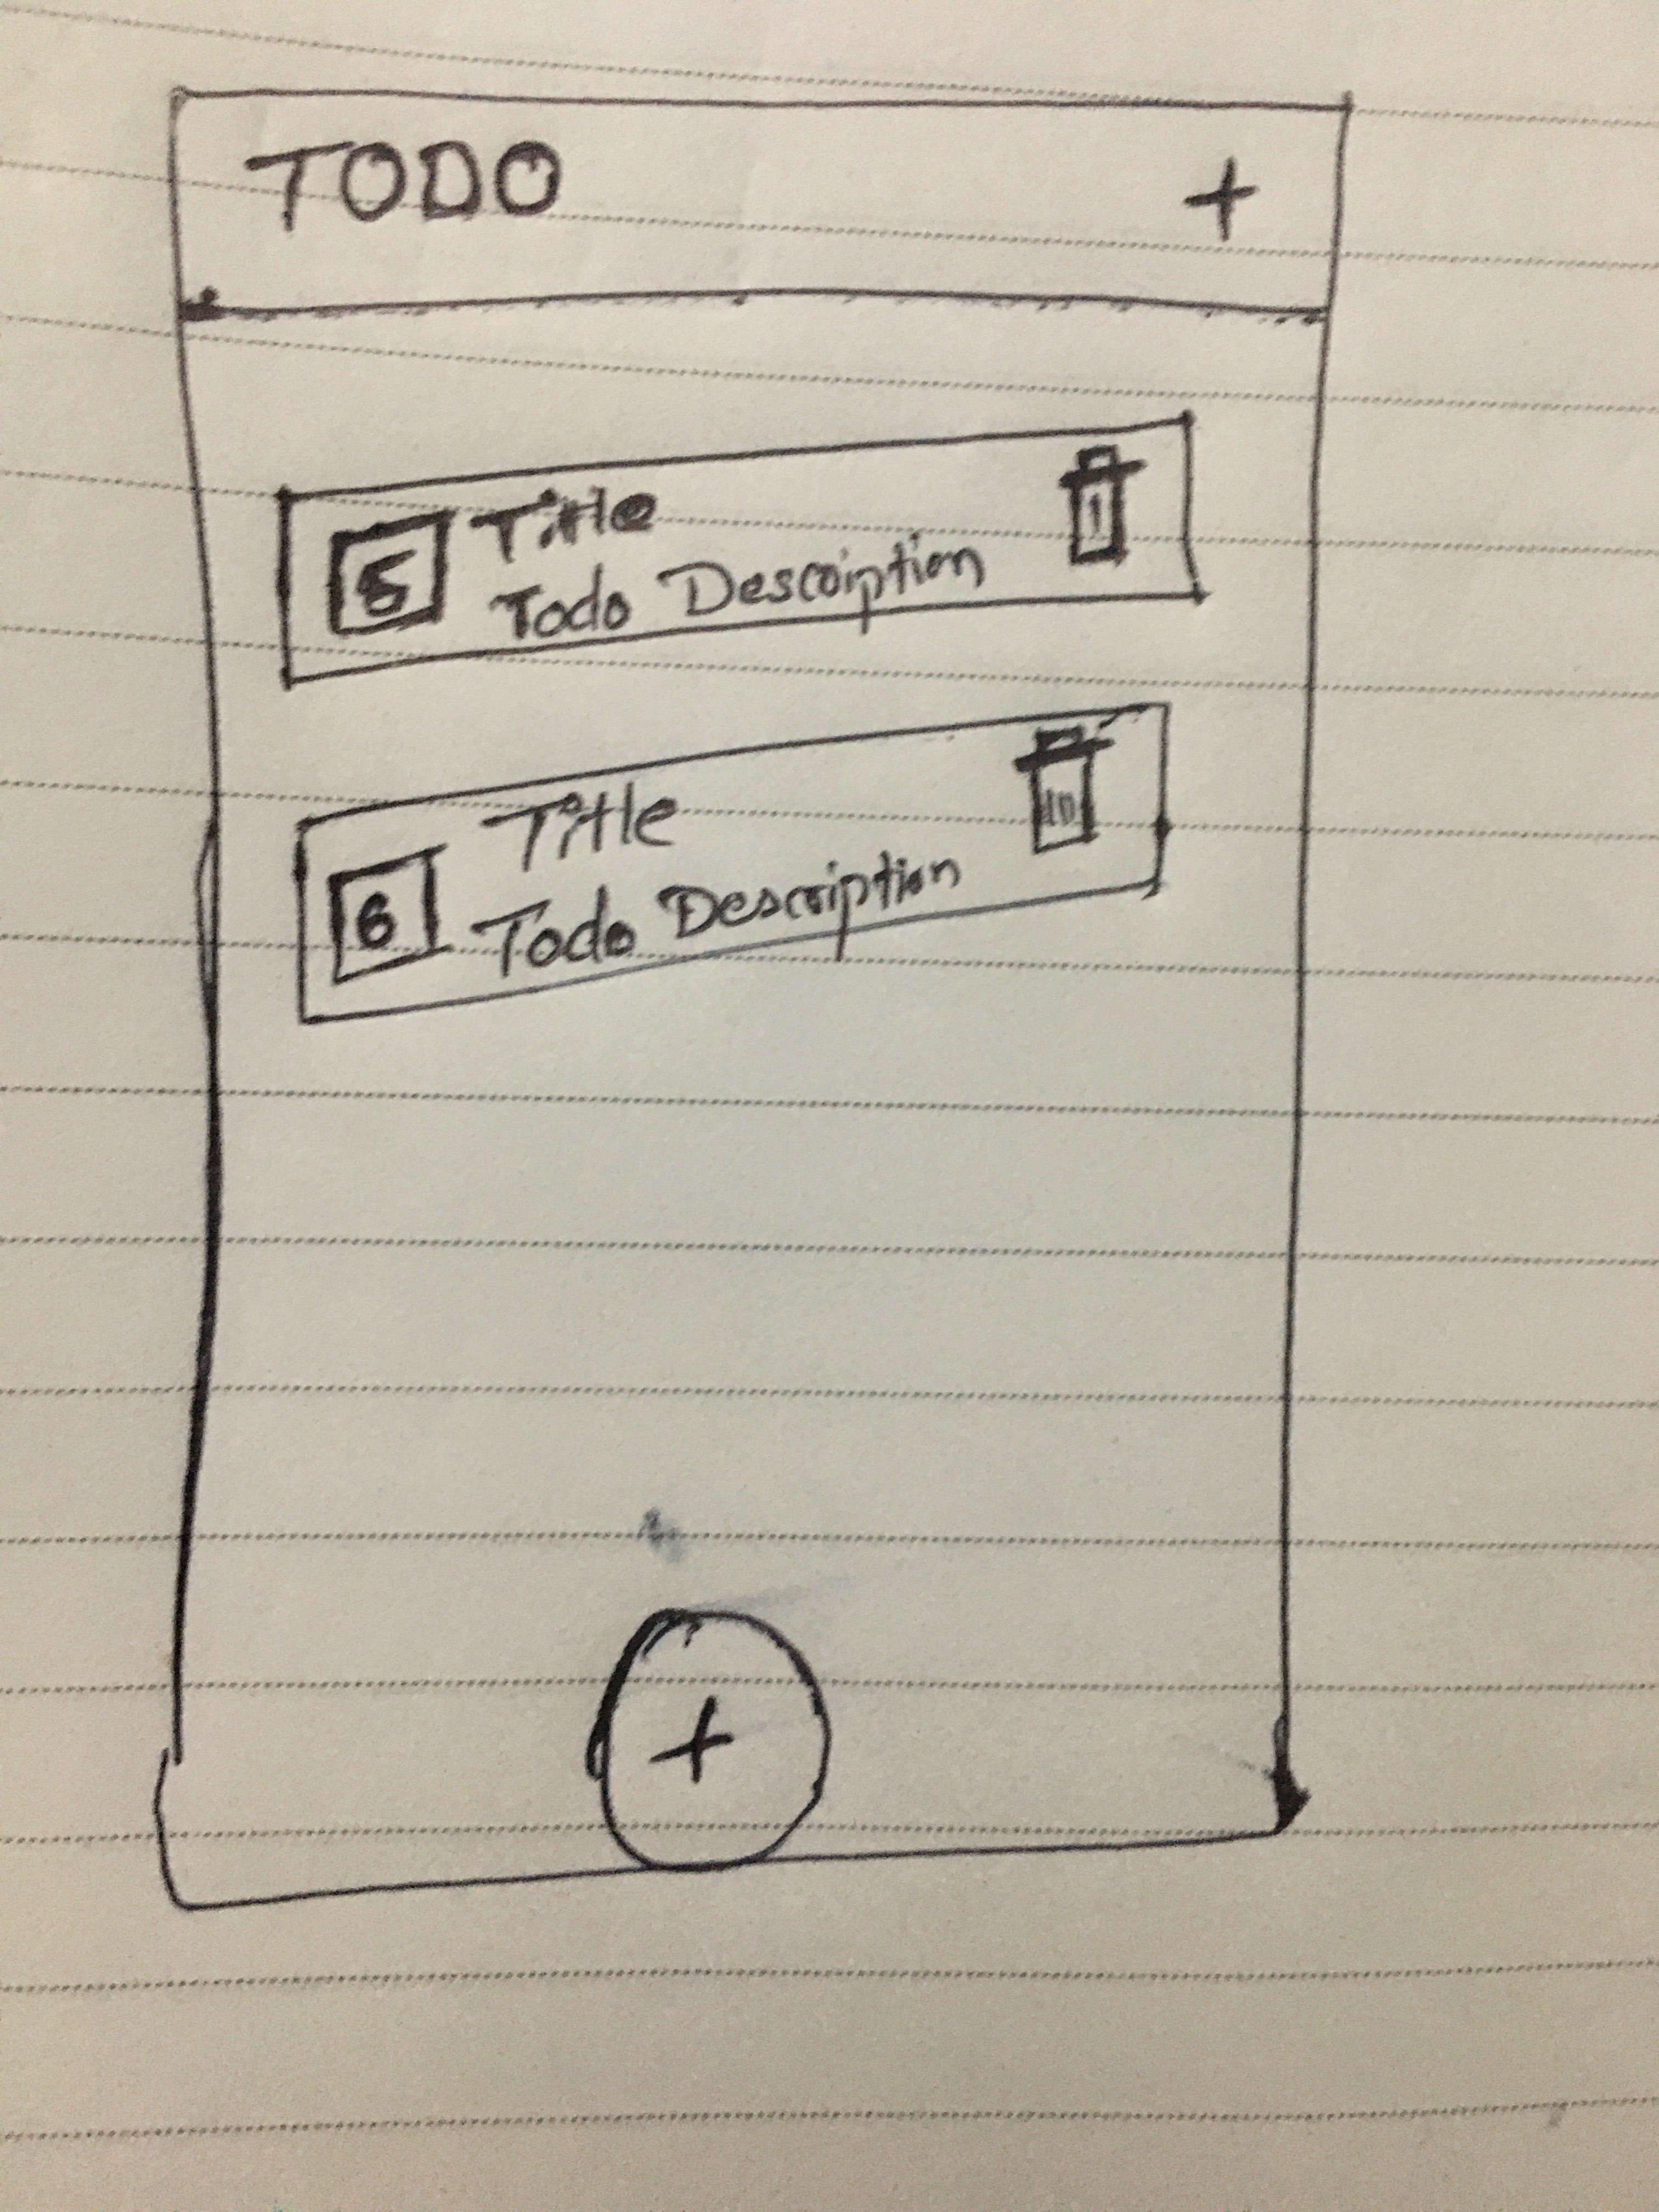 TODO +
5 Title
Todo Description
Title
6 Todo Description
+